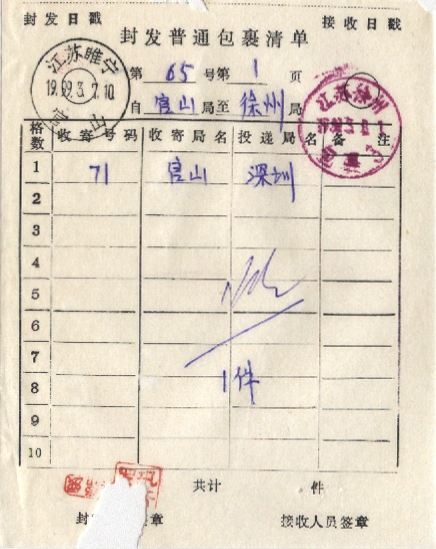 封发日戳 接收日戳
封发普通包裹清单
江苏睢宁
19.82.3.7.10
山
第 65 号第 1 页
自 官山 局至 徐州 局
江苏徐州
格数 收寄号码 收寄局名 投递局名 备注
1 71 官山 深圳
2
3
4
5
6
7
1件
8
9
10
共计 件
封 章 接收人员签章